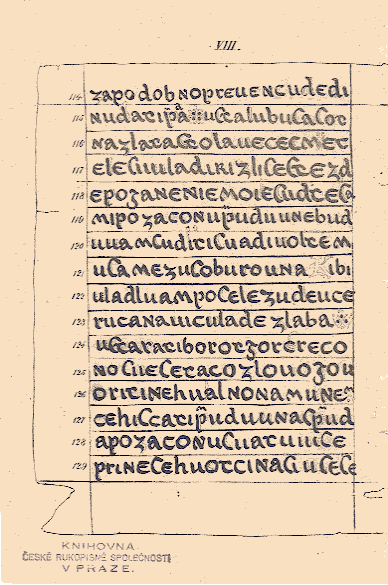 VIII.
114 zapodobnopreuencudedi
115 nudatip̃a:uſtalalubuſaſot
116 nazlataſtolauececmet
117 eleſiiuladikizliſeſtezd
118 epoganeniemoieſudteſa
119 mipozaconup̃uduunebud
120 uuamſuditiſuadiuoltem
121 uſamezuſoburouna ibi
122 uladluampoſelezudeuce
123 rucanauiculadezlaba
124 uſtaratiborotgorcreco
125 noſiieſetacozlouogou
126 oritinehualnonamunem
127 cehiſcatip̃uduunaſp̃ud
128 apozaconuſuatuiuſe
129 prineſehuotcinaſiuſeſe
KNIHOVNA
ČESKÉ RUKOPISNÉ SPOLEČNOSTI
V PRAZE.